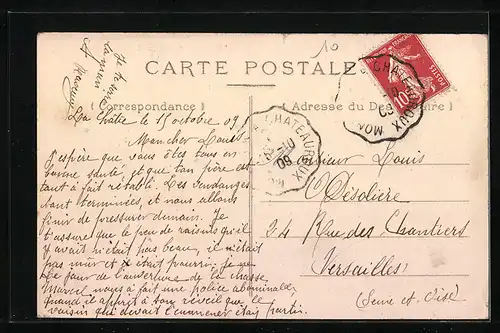 10
CARTE POSTALE
(Correspondance)
(Adresse du Destinataire)
La Châtre le 15 octobre 09
Mon cher Louis
J'espère que vous êtes tous en
bonne santé, et que ton père est
tout à fait rétabli. Les vendanges
sont terminées, et nous allons
finir de pressurer demain. Je
t'assure que le peu de raisins qu'il
y avait n'était pas beau, il n'était
pas mûr et il était pourri.
Le jour de l'ouverture de la chasse
Marcel nous a fait une police abominable
quand il apprit à son réveil que le
voisin qui devait l'emmener était parti.
Je
Monsieur Louis
Désolière
34 Rue des Chantiers
Versailles
(Seine et Oise)
CHATEAUROUX
09
CHATEAUROUX
09
POSTES
10